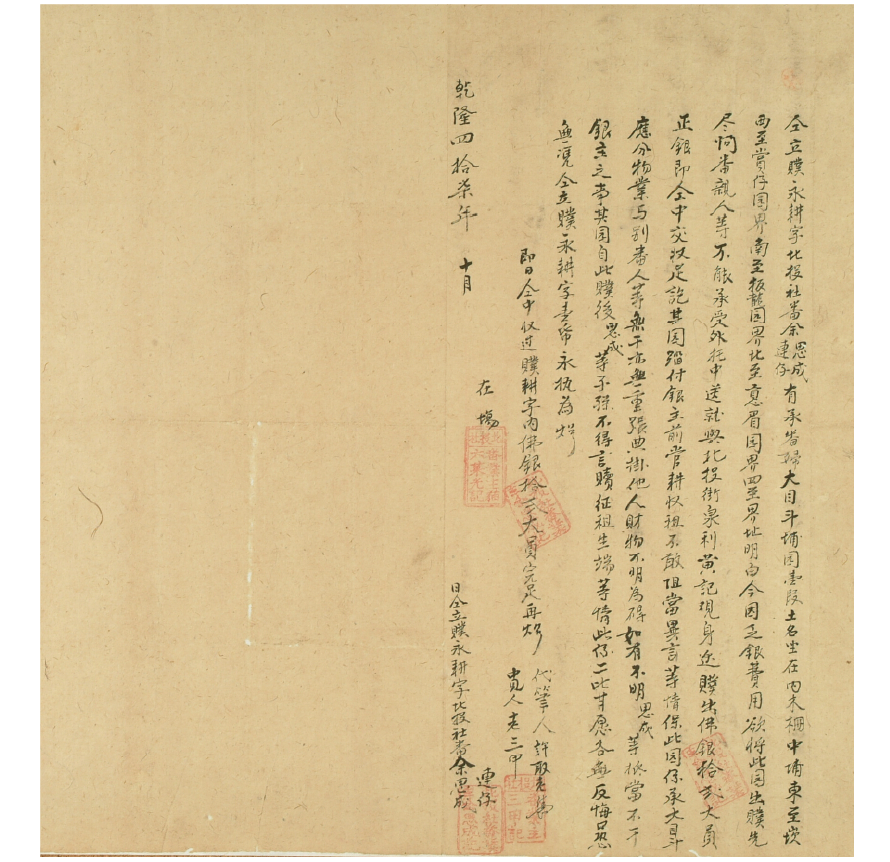 仝立贌永耕字北投社番余思成連仔有承番婦大目斗埔园壹段土名坐在內木柵中埔東至崁
西至賞仔园界南至振龍园界北至意眉园界四至界址明白今因乏銀費用欲將此园出贌先
尽问番親人等不能承受外托中送就與北投街泉利黄記現身迯贌出佛銀拾弍大員
正銀即仝中交收足訖其园踏付銀主前官耕收租不敢阻當異言等情保此园係承大目斗
應分物業与别番人等無干亦無重張典掛他人財物不明為碍如有不明思成等抵當不干
銀主之事其园自此贌後思成等子孫不得言贖征租生端等情此係二比甘愿各無反悔恐
無凭仝立贌永耕字壹帋永执為炤
即日仝中收过贌耕字內佛銀拾弍大員完足再炤
代筆人 許
人老三甲
在塲
乾隆四拾柒年 十月
日仝立贌永耕字北投社番余思成連仔